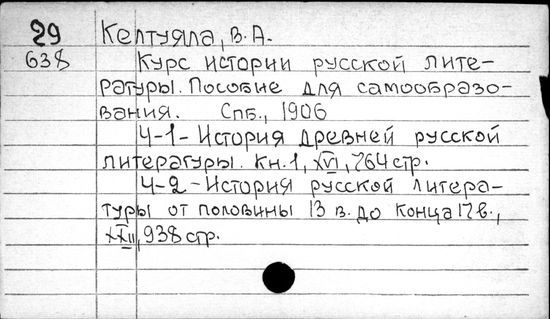 29 Келтуяла, В. А.
638 Курс истории русской лите-
ратуры. Пособие для самообразо-
вания. Спб., 1906
Ч-1 - История древней русской
литературы. Кн. 1, XVI, 764 стр.
Ч-2 - История русской литера-
туры от половины 13 в. до конца 17 в.,
XXII, 938 стр.